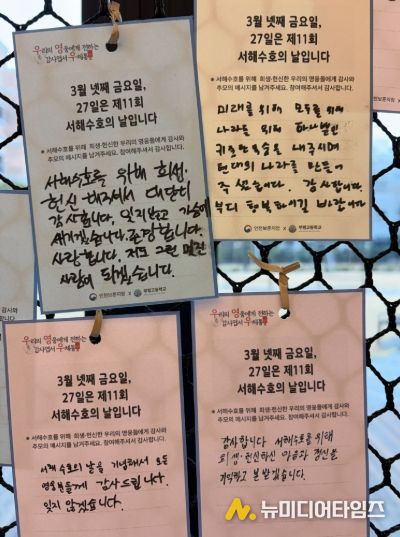 우리의 영웅에게 전하는
감사엽서 우체통
3월 넷째 금요일,
27일은 제11회
서해수호의 날입니다
※ 서해수호를 위해 희생·헌신한 우리의 영웅들에게 감사와
추모의 메시지를 남겨주세요. 참여해주셔서 감사합니다.
서해수호를 위해 희생,
헌신 해주셔서 대단히
감사합니다. 잊지않고 가슴에
새기겠습니다. 존경합니다.
사랑합니다. 저도 그런 멋진
사람이 되겠습니다.
인천보훈지청 x 부평고등학교
3월 넷째 금요일,
27일은 제11회
서해수호의 날입니다
※ 서해수호를 위해 희생·헌신한 우리의 영웅들에게 감사와
추모의 메시지를 남겨주세요. 참여해주셔서 감사합니다.
미래를 위해 모두를 위해
나라를 위해 하나뿐인
귀중한 목숨을 내주시며
현대의 나라를 만들어
주셨습니다. 감사합니다.
부디 행복하시길 바랍니다
인천보훈지청 x 부평고등학교
우리의 영웅에게 전하는
감사엽서 우체통
3월 넷째 금요일,
27일은 제11회
서해수호의 날입니다
※ 서해수호를 위해 희생·헌신한 우리의 영웅들에게 감사와
추모의 메시지를 남겨주세요. 참여해주셔서 감사합니다.
서해 수호의 날을 기념해서 모든
영웅분들께 감사드립니다.
잊지 않겠습니다.
우리의 영웅에게 전하는
감사엽서 우체통
3월 넷째 금요일,
27일은 제11회
서해수호의 날입니다
※ 서해수호를 위해 희생·헌신한 우리의 영웅들에게 감사와
추모의 메시지를 남겨주세요. 참여해주셔서 감사합니다.
감사합니다 서해수호를 위해
희생·헌신하신 마음과 정신을
기억하고 본받겠습니다.
뉴미디어타임즈